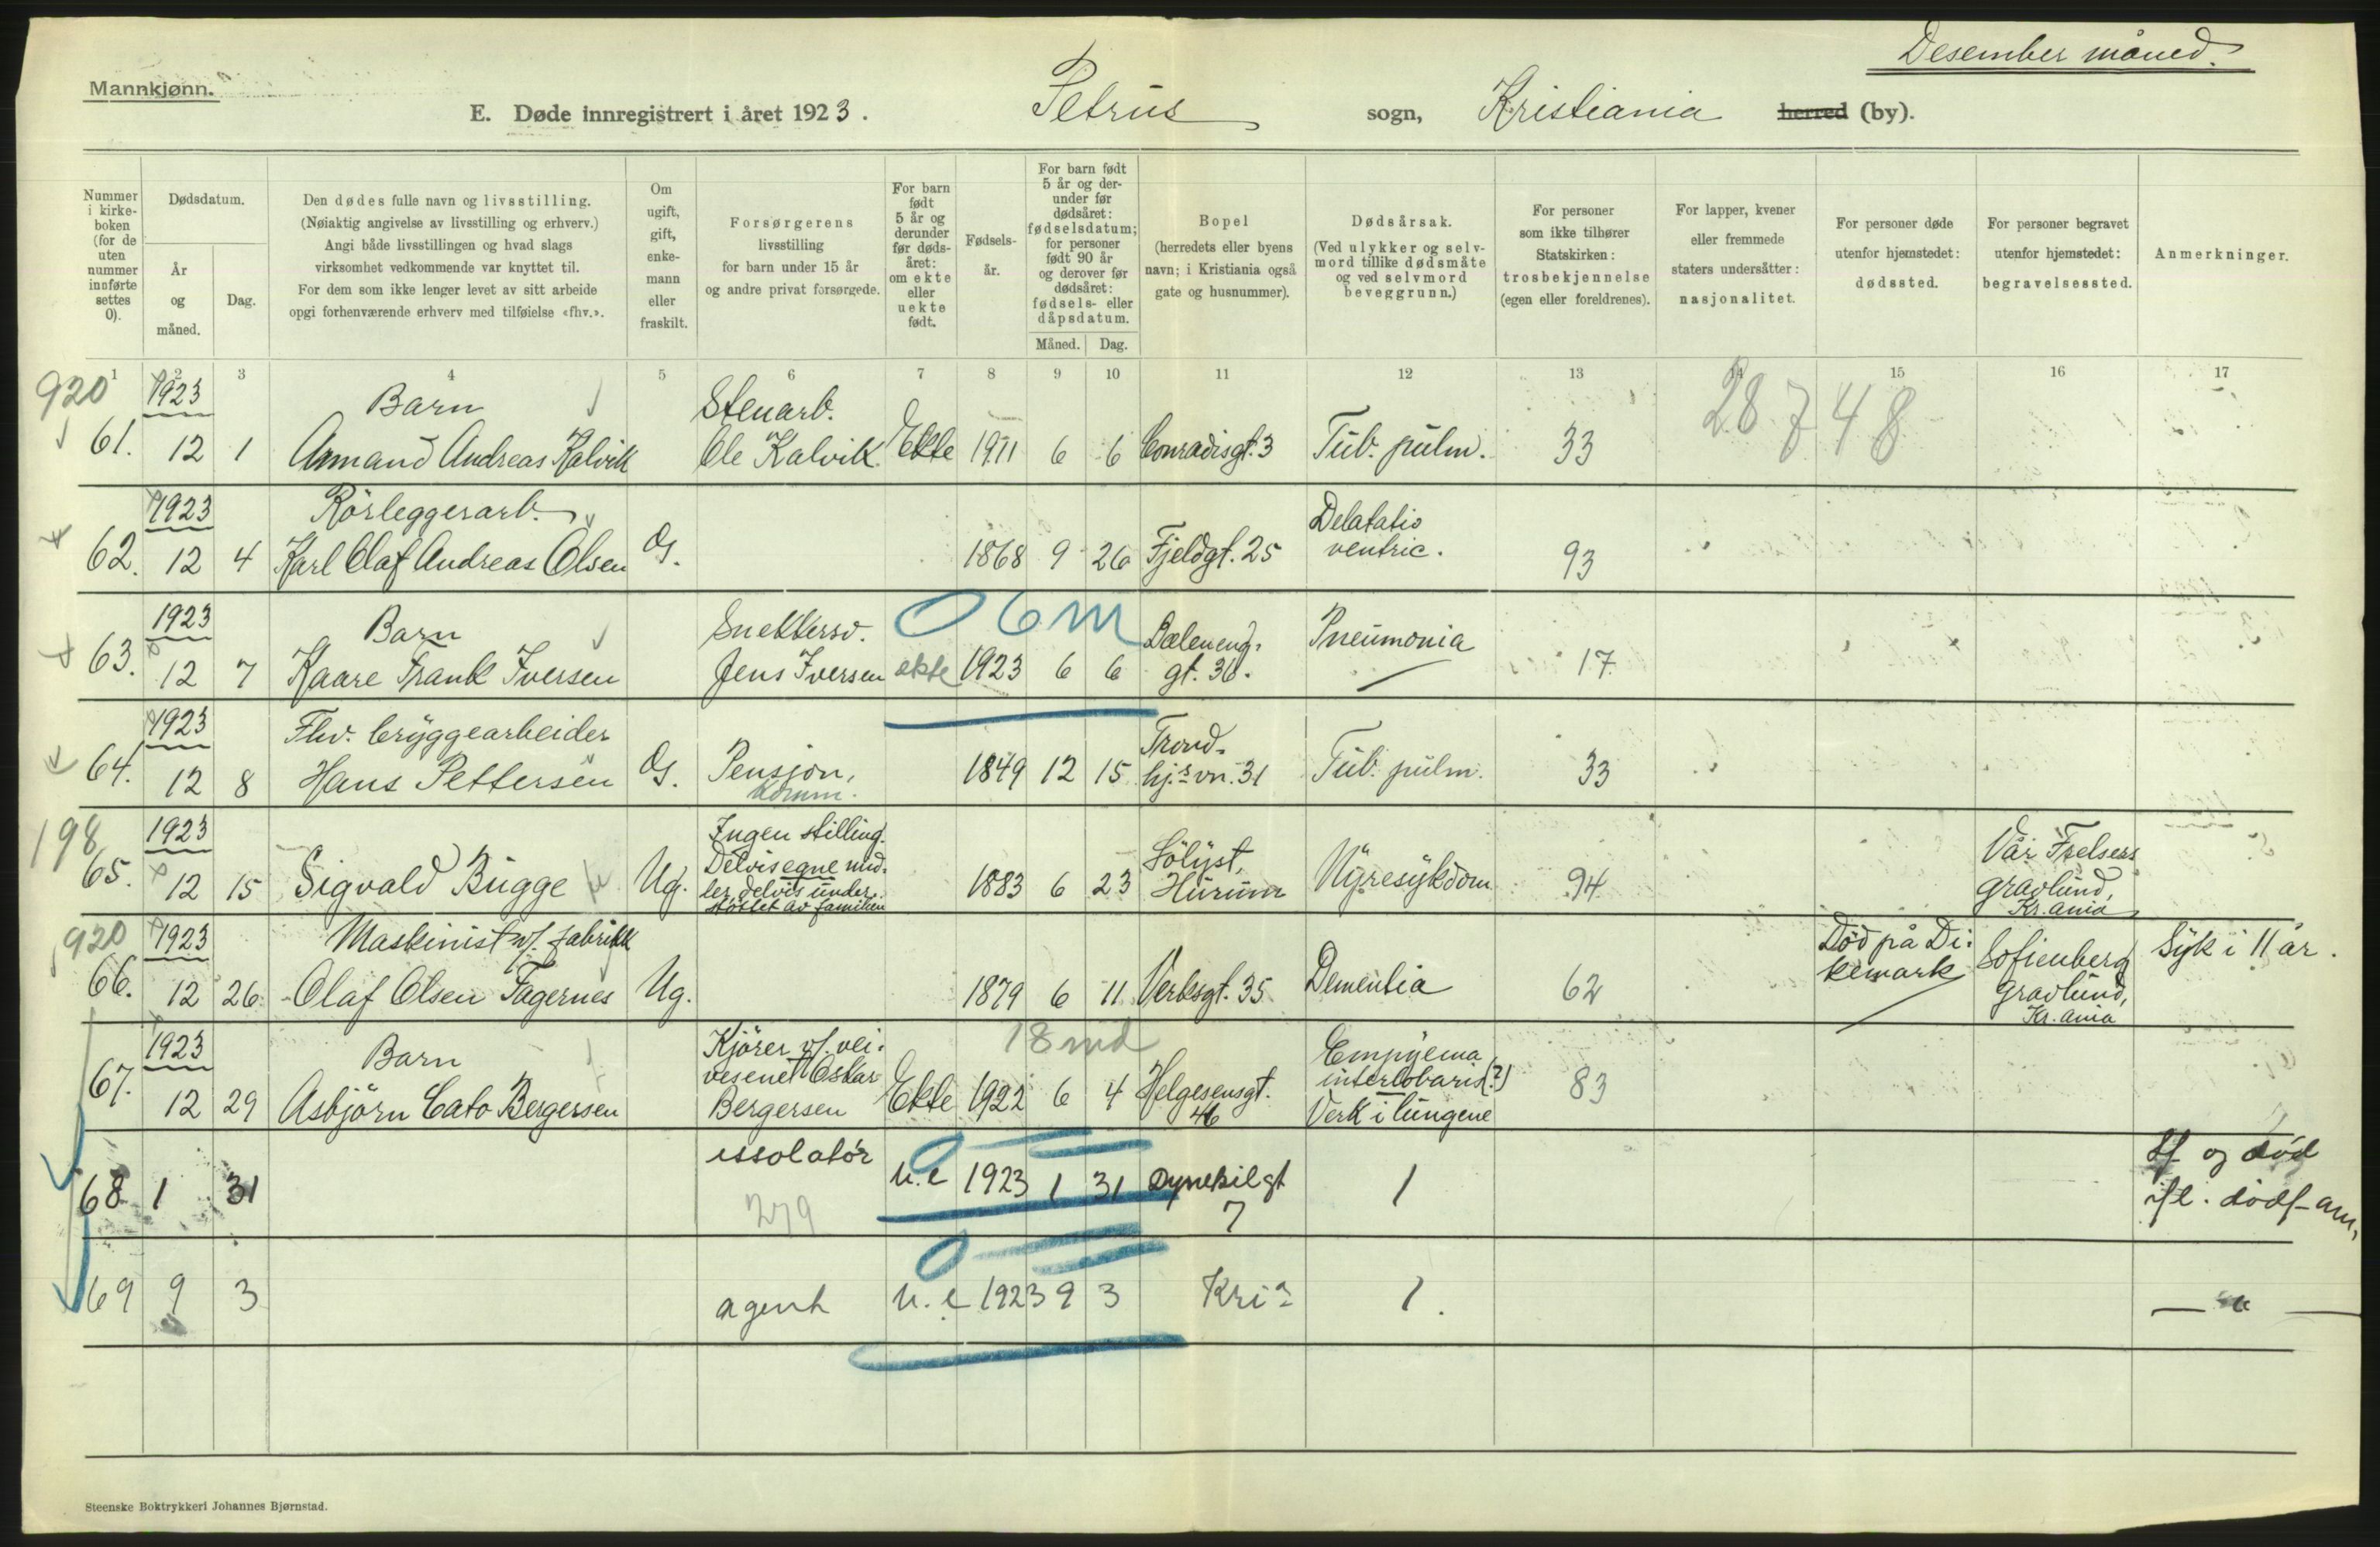 Desember måned.
Mannkjønn.
E. Døde innregistrert i året 1923. Petrus sogn, Kristiania herred (by).
Nummer i kirke- boken (for de uten nummer innførte settes 0).
Dødsdatum.
År og måned.
Dag.
Den dødes fulle navn og livsstilling.
(Nøiaktig angivelse av livsstilling og erhverv.)
Angi både livsstillingen og hvad slags
virksomhet vedkommende var knyttet til.
For dem som ikke lenger levet av sitt arbeide
opgi forhenværende erhverv med tilføielse «fhv.».
Om ugift, gift, enke- mann eller fraskilt.
Forsørgerens
livsstilling
for barn under 15 år
og andre privat forsørgede.
For barn født 5 år og derunder før døds- året: om ekte eller uekte født.
Fødsels- år.
For barn født 5 år og der- under før dødsåret: fødselsdatum; for personer født 90 år og derover før dødsåret: fødsels- eller dåpsdatum.
Måned. Dag.
Bopel
(herredets eller byens
navn; i Kristiania også
gate og husnummer).
Dødsårsak.
(Ved ulykker og selv-
mord tillike dødsmåte
og ved selvmord
beveggrunn.)
For personer
som ikke tilhører
Statskirken:
trosbekjennelse
(egen eller foreldrenes).
For lapper, kvener
eller fremmede
staters undersåtter:
nasjonalitet.
For personer døde
utenfor hjemstedet:
dødssted.
For personer begravet
utenfor hjemstedet:
begravelsessted.
Anmerkninger.
1 2 3 4 5 6 7 8 9 10 11 12 13 14 15 16 17
920 1923 Barn Stenarb. 28748
61. 12 1 Armand Andreas Kalvik Ole Kalvik. Ekte 1911 6 6 Conradisgt. 3 Tub. pulm. 33
1923 Rörleggerarb. Delatatio
62. 12 4 Karl Olaf Andreas Olsen G. 1868 9 26 Fjeldgt. 25 ventric. 93
1923 Barn Snekkersv. 0 6 m Dæleneng- Pneumonia
63. 12 7 Kaare Frank Iversen Jens Iversen ekte 1923 6 6 gt. 36. 17
1923 Fhv. bryggearbeider Trond-
64. 12 8 Hans Pettersen G. Pensjon, 1849 12 15 hj.s vn. 31 Tub. pulm. 33
komm.
198 1923 Ingen stilling.
Delvis egne mid- Sölyst, Vår Frelsers
65. 12 15 Sigvald Bugge Ug. ler, delvis under- 1883 6 23 Hurum Nyresykdom 94 gravlund,
støttet av familien Kr.ania
920 1923 Maskinist v/. fabrikk Död på Di- Sofienberg Syk i 11 år.
66. 12 26 Olaf Olsen Fagernes Ug. 1879 6 11 Verksgt. 35 Dementia 62 kemark gravlund,
Kr.ania
1923 Barn Kjörer v/. vei- 18 md Empyema
vesenet Oskar interlobaris (?)
67. 12 29 Asbjörn Cato Bergersen Bergersen Ekte 1922 6 4 Helgesensgt. 46 Verk i lungene 83
issolatör 0
68 1 31 279 u.e 1923 1 31 Dynekilgt 7 1 Sf. og död
ifl. dödf-an,
0
69 9 3 agent u.e 1923 9 3 Kria 1. — " —
Steenske Boktrykkeri Johannes Bjørnstad.